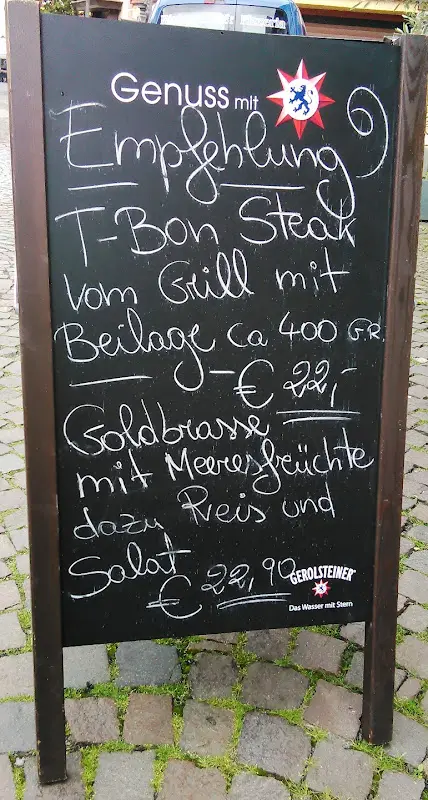 Genuss mit
Empfehlung
T-Bon Steak
vom Grill mit
Beilage ca 400 GR.
€ 22,-
Goldbrasse
mit Meeresfrüchte
dazu Reis und
Salat
€ 22,90
GEROLSTEINER
Das Wasser mit Stern